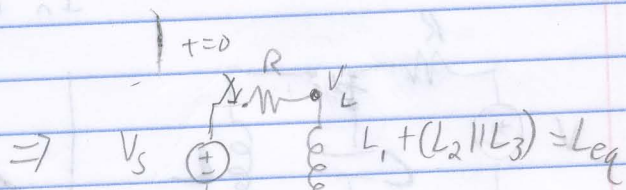 t=0
R
V_L
=> V_S L_1 + (L_2 || L_3) = L_eq